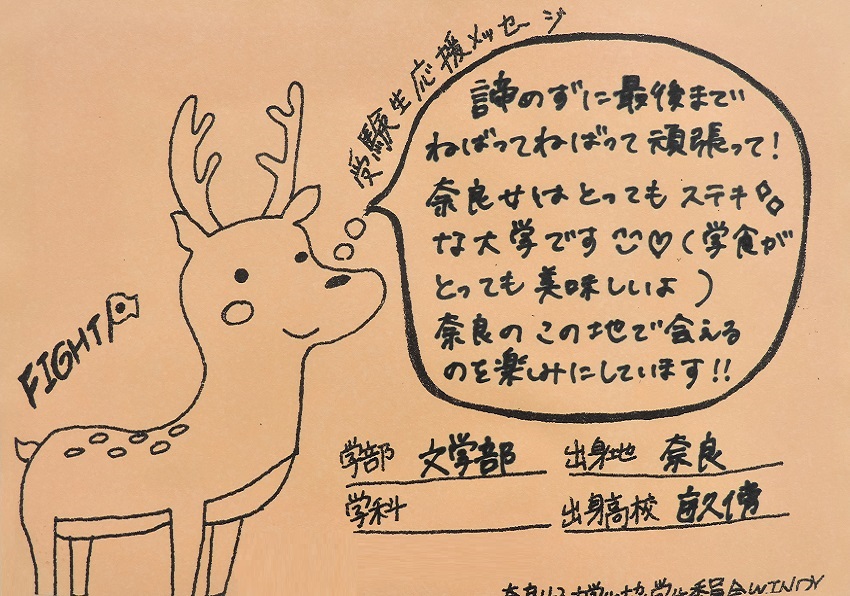 受験生応援メッセージ
諦めずに最後まで
ねばってねばって頑張って!
奈良女はとってもステキ
な大学です♡(学食が
とっても美味しいよ)
奈良のこの地で会える
のを楽しみにしています!!
FIGHT!
学部 文学部 出身地 奈良
学科 出身高校
WINDY